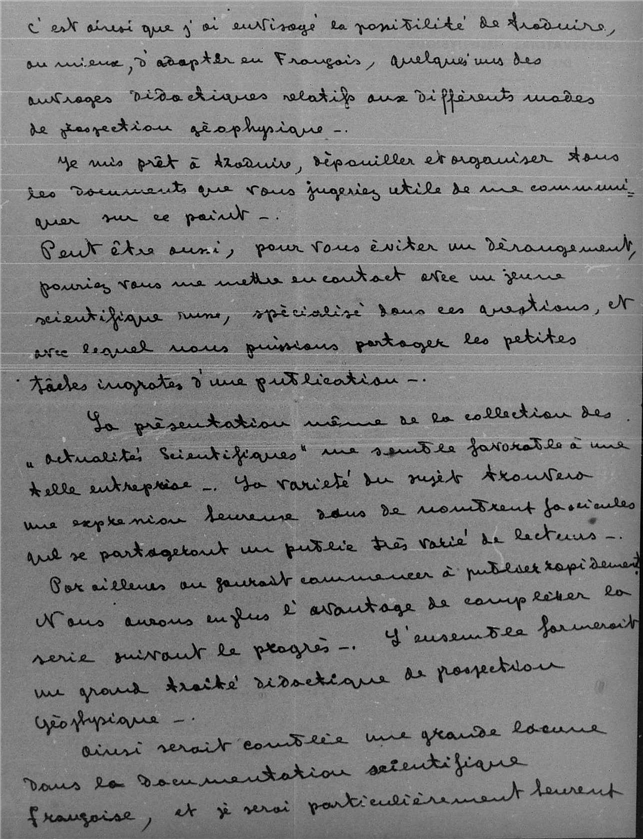 c'est ainsi que j'ai envisagé la possibilité de traduire,
ou mieux, d'adapter en Français, quelques uns des
ouvrages didactiques relatifs aux différents modes
de prospection géophysique -.
Je suis prêt à traduire, dépouiller et organiser tous
les documents que vous jugeriez utile de me communi=
quer sur ce point -.
Peut être aussi, pour vous éviter un dérangement,
pouriez vous me mettre en contact avec un jeune
scientifique russe, spécialisé dans ces questions, et
avec lequel nous puissions partager les petites
tâches ingrates d'une publication -.
La présentation même de la collection des
„Actualités Scientifiques" me semble favorable à une
telle entreprise -. La varieté du sujèt trouvera
une expression heureuse dans de nombreux fascicules
qui se partageront un public très varié de lecteurs -.
Par ailleurs on pourait commencer à publier rapidement.
Nous aurons en plus l'avantage de compléter la
serie suivant le progrès -. L'ensemble formerait
un grand traité didactique de prospection
géophysique -.
Ainsi serait comblée une grande lacune
dans la documentation scientifique
française, et je serai particulièrement heureux